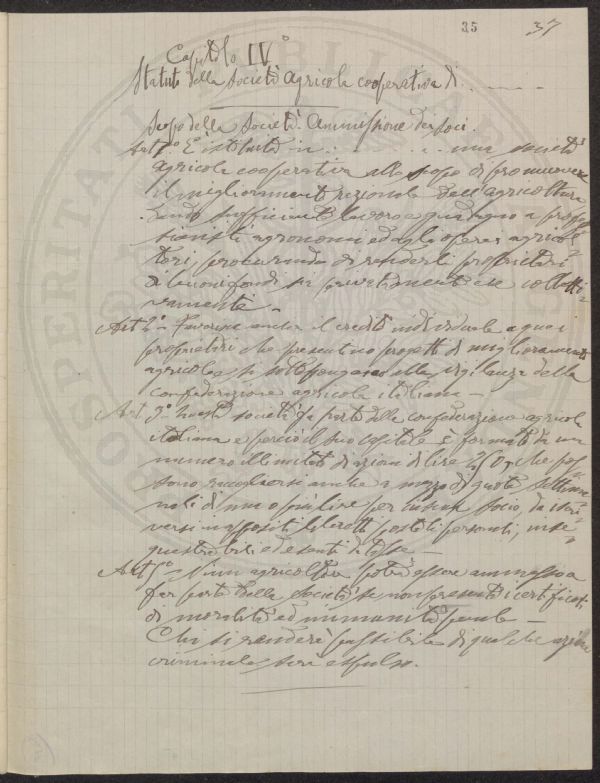 35 37
Capitolo IV°
Statuto della Società Agricola cooperativa di ........
Scopo della Società. Ammissione dei soci.
Art 1° È istituita in . . . . . . . una società
agricola cooperativa allo scopo di promuovere
il miglioramento razionale dell'agricoltura
dando sufficiente lavoro e guadagno a profes=
sionisti agronomi ed agli operai agricol=
tori, procurando di renderli proprietari
di buoni fondi sia privatamente che colletti=
vamente.
Art 2° - Favorire anche il credito individuale a quei
proprietari che presentino progetti di miglioramento
agricolo e si sottopongano alla vigilanza della
confederazione agricola italiana -
Art 3° Questa società fa parte della confederazione agricola
italiana e perciò il suo capitale è formato da un
numero illimitato di azioni di lire che pos=
sono raccogliersi anche a mezzo di quote settima=
nali di una o più lire per ciascun socio, da ver=
versi in appositi libretti postali personali, inse=
questrabili ed esenti da tasse -
Art - Niun agricoltore potrà essere ammesso a
far parte della Società se non presenti i certificati
di moralità ed immunità penale -
Chi si renderà passibile di qualche azione
criminale sarà espulso.